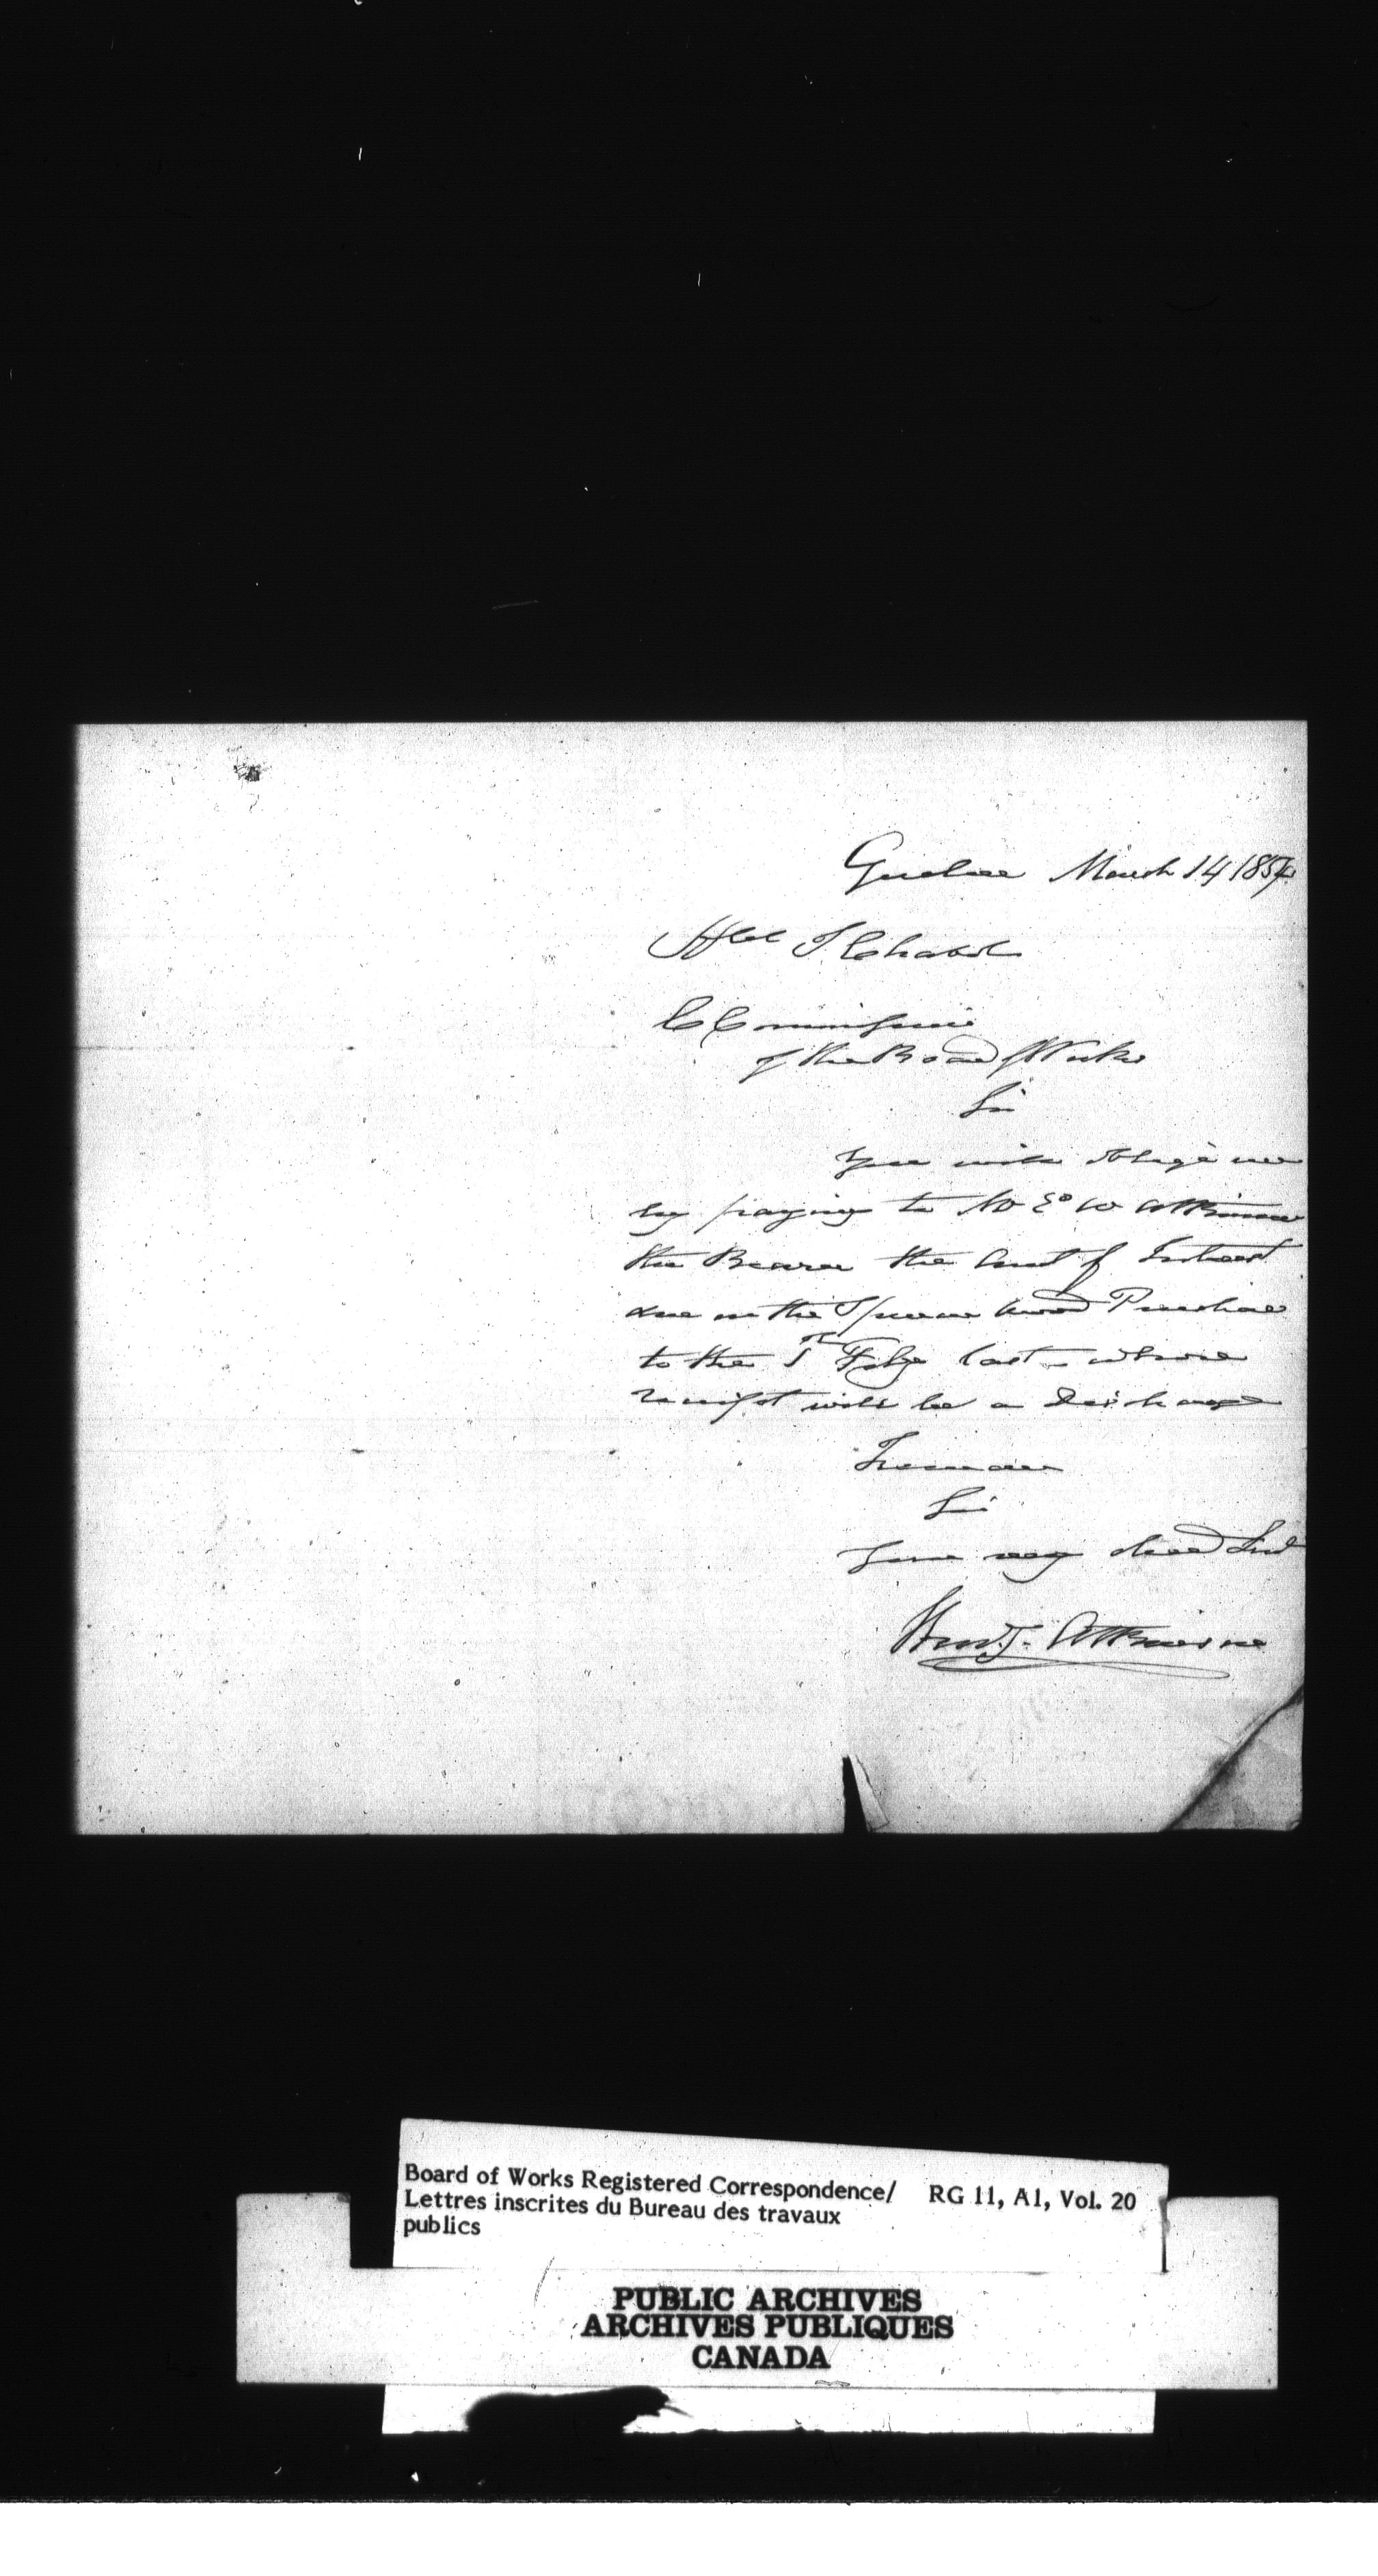 Quebec March 14 1854
Hble J Chabot
C Commissione
of the Board of Works
Sir
You will oblige me
by paying to Mr Ed W Atkinson
the Bearer the Amt of Interest
due on the Spencer Wood Purchase
to the 1st Feby last whose
receipt will be a Discharge
I remain
Sir
Your very obed Svt
Henry Atkinson
Board of Works Registered Correspondence/ RG 11, A1, Vol. 20
Lettres inscrites du Bureau des travaux
publics
PUBLIC ARCHIVES
ARCHIVES PUBLIQUES
CANADA